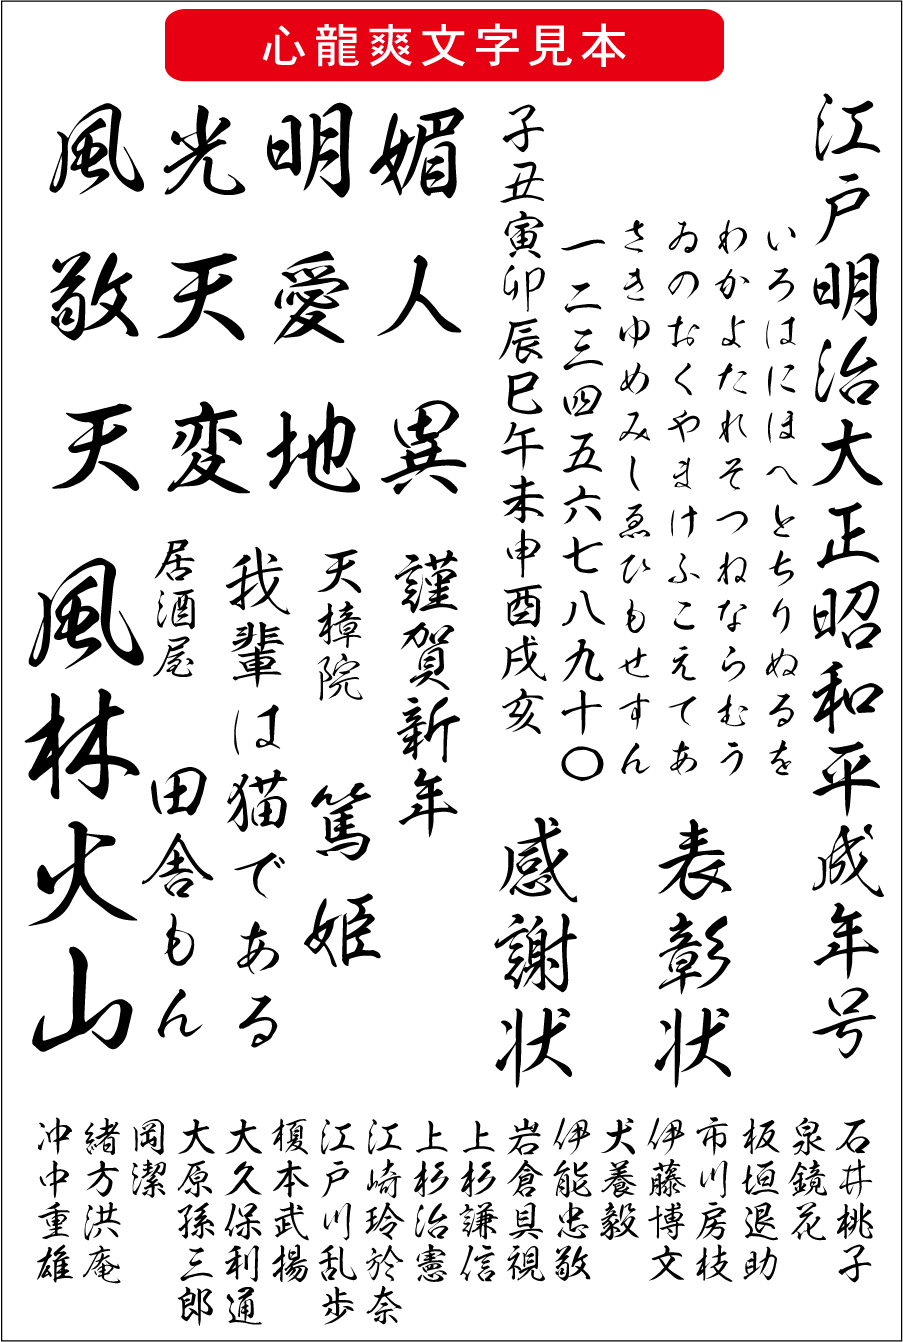 心龍爽文字見本
江戸明治大正昭和平成年号
いろはにほへとちりぬるを
わかよたれそつねならむう
ゐのおくやまけふこえてあ
さきゆめみしゑひもせすん
一二三四五六七八九十〇
子丑寅卯辰巳午未申酉戌亥
表彰状
感謝状
風光明媚
敬天愛人
天変地異
謹賀新年
天樟院 篤姫
我輩は猫である
居酒屋 田舎もん
風林火山
石井桃子
泉鏡花
板垣退助
市川房枝
伊藤博文
犬養毅
伊能忠敬
岩倉具視
上杉謙信
上杉治憲
江崎玲於奈
江戸川乱歩
榎本武揚
大久保利通
大原孫三郎
岡潔
緒方洪庵
冲中重雄